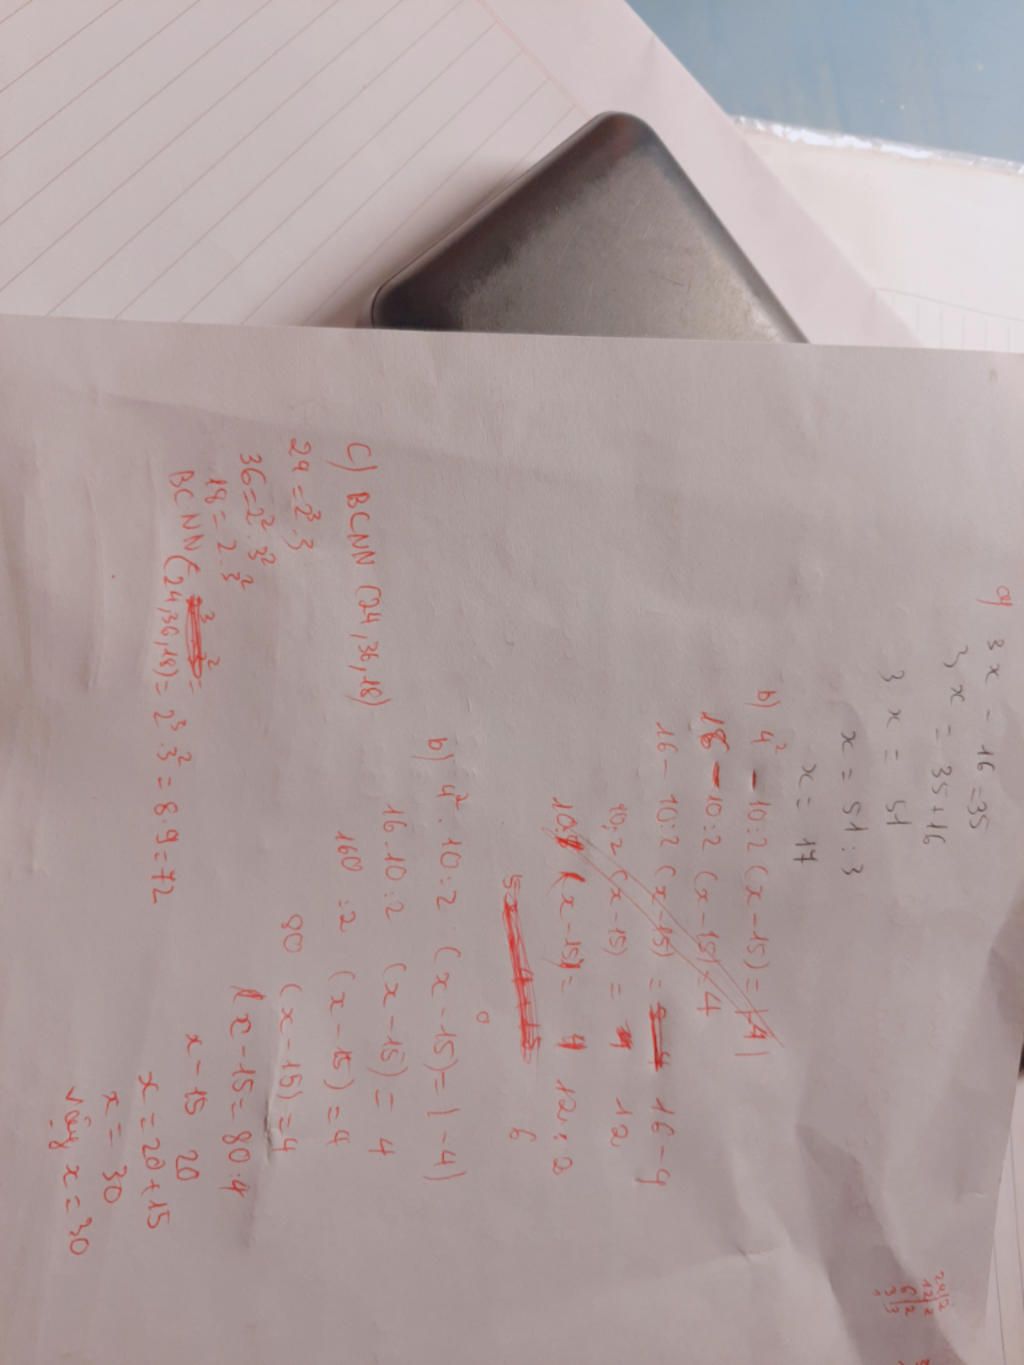 a) 3x - 16 = 35
3x = 35 + 16
3x = 51
x = 51 : 3
x = 17
b) 4² - 10 : 2 (x - 15) = |-4|
16 - 10 : 2 (x - 15) = 4
16 - 10 : 2 (x - 15) = 16 - 4
10 : 2 (x - 15) = 12
(x - 15) = 12 : 2
6
b) 4² . 10 : 2 (x - 15) = |-4|
16 . 10 : 2 (x - 15) = 4
160 : 2 (x - 15) = 4
80 (x - 15) = 4
x - 15 = 80 : 4
x - 15 20
x = 20 + 15
x = 30
vậy x = 30
C) BCNN (24, 36, 18)
24 = 2³ . 3
36 = 2² . 3²
18 = 2 . 3²
BCNN (24, 36, 18) = 2³ . 3² = 8 . 9 = 72
24 2
12 2
6 2
3 3